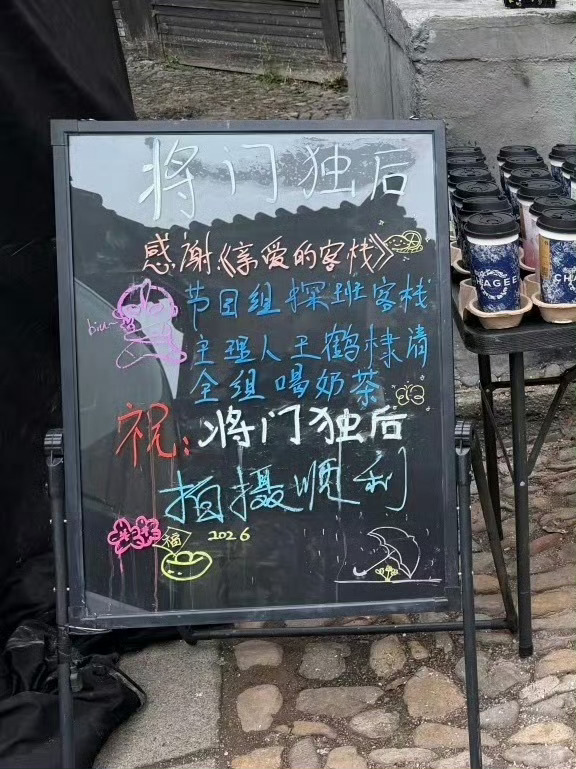 将门独后
感谢《亲爱的客栈》
节目组探班客栈
主理人王鹤棣请
全组喝奶茶
biu~
祝:将门独后
拍摄顺利
福
2026
CHAGEE
CHAGEE